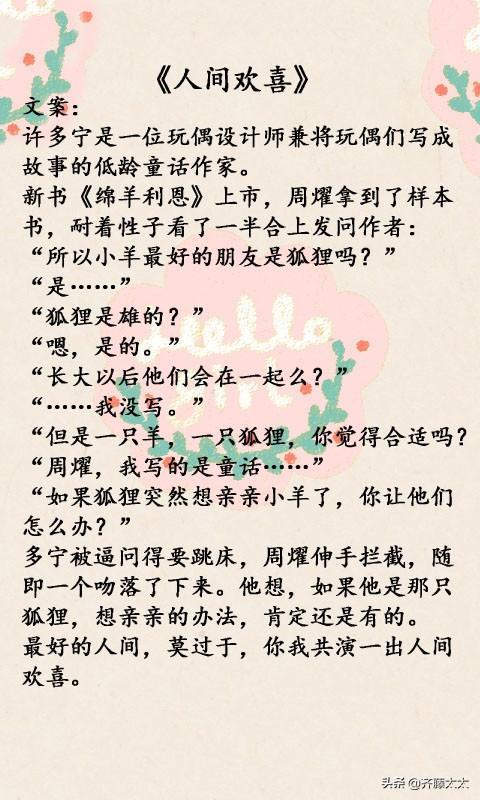 《人间欢喜》
文案：
许多宁是一位玩偶设计师兼将玩偶们写成
故事的低龄童话作家。
新书《绵羊利恩》上市，周燿拿到了样本
书，耐着性子看了一半合上发问作者：
“所以小羊最好的朋友是狐狸吗？”
“是……”
“狐狸是雄的？”
“嗯，是的。”
“长大以后他们会在一起么？”
“……我没写。”
“但是一只羊，一只狐狸，你觉得合适吗？
“周燿，我写的是童话……”
“如果狐狸突然想亲亲小羊了，你让他们
怎么办？”
多宁被逼问得要跳床，周燿伸手拦截，随
即一个吻落了下来。他想，如果他是那只
狐狸，想亲亲的办法，肯定还是有的。
最好的人间，莫过于，你我共演一出人间
欢喜。
Hello
girl
头条 @齐藤太太